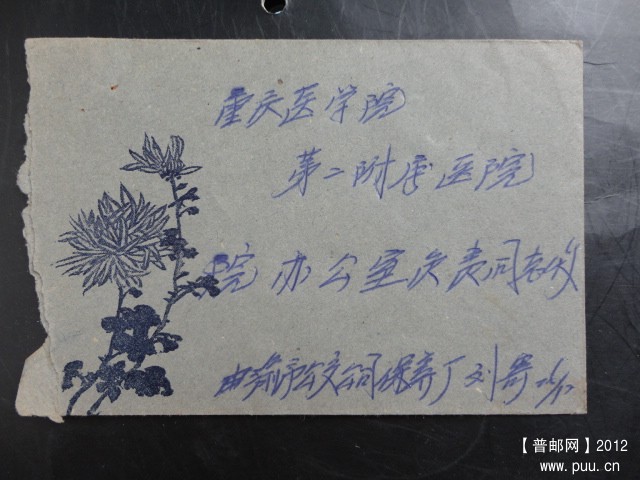 重庆医学院
第二附属医院
院办公室负责同志收
由渝市公交公司保养厂刘寄
【普邮网】2012
www.puu.cn